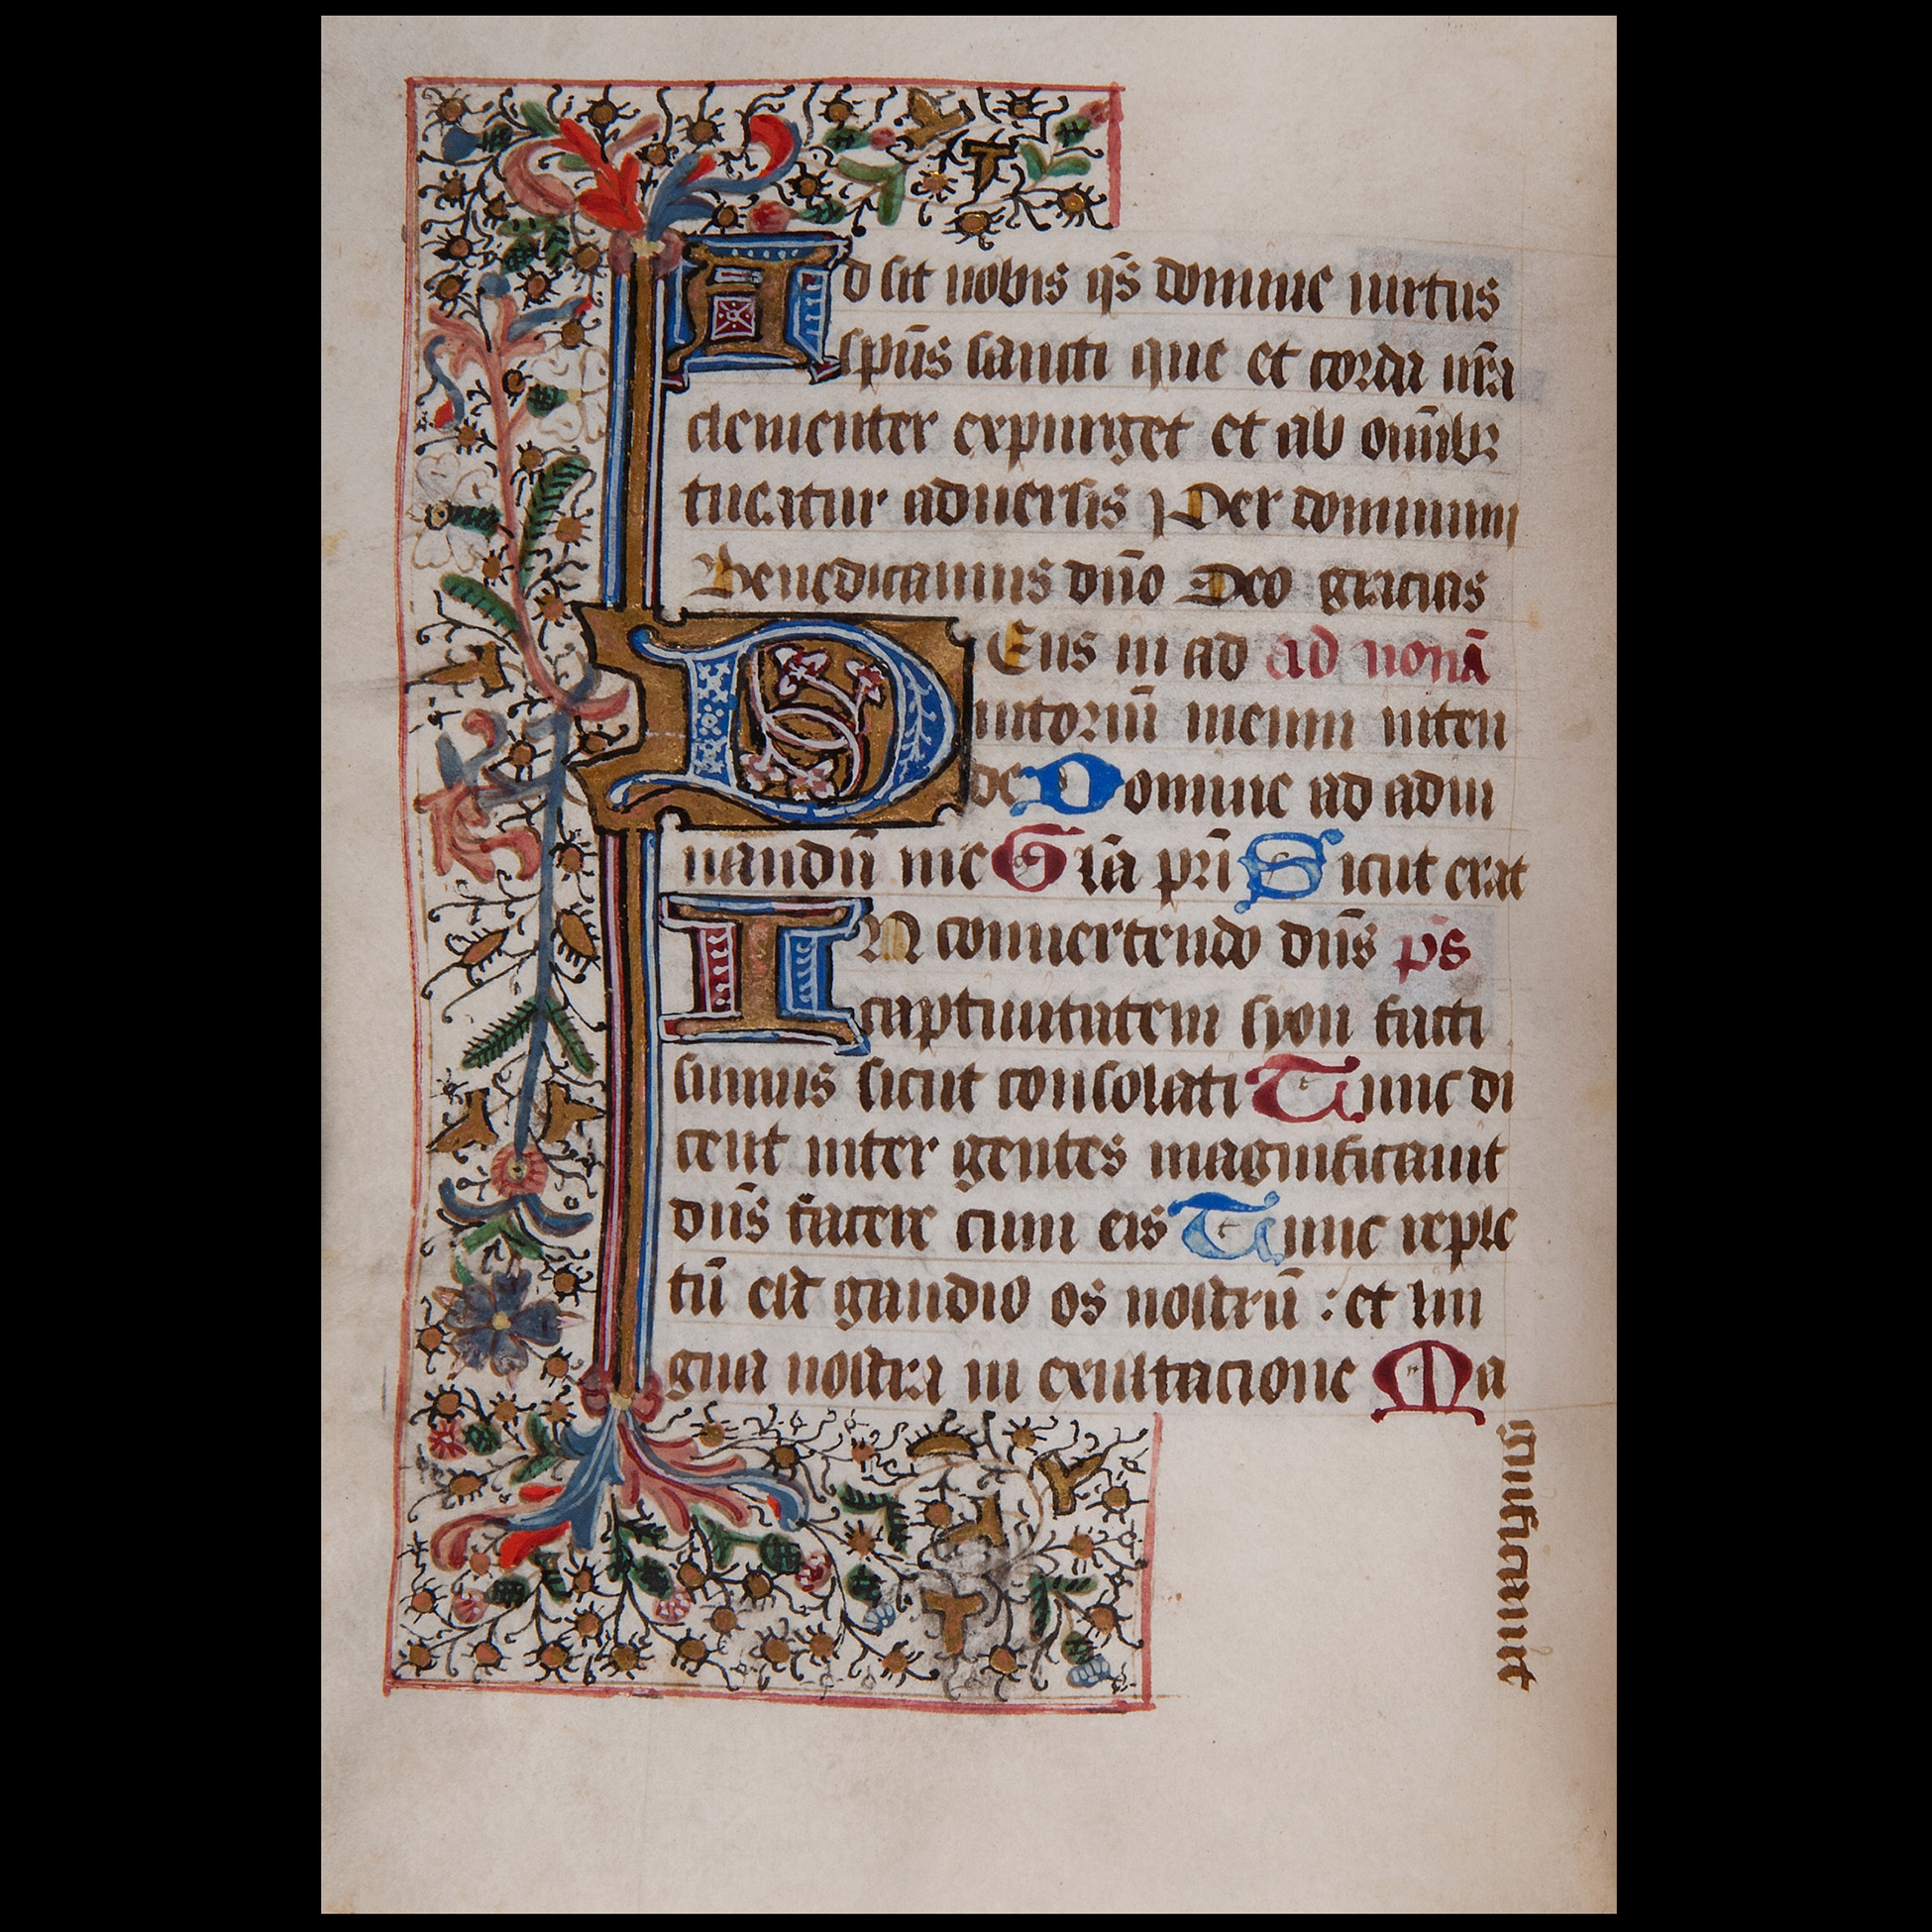 Ad sit nobis q̄s domine uirtus
sp̄us sancti que et corda nr̄a
clementer expurget et ab om̄ibꝫ
tueatur aduersis Per dominum
Benedicamus dn̄o Deo gracias
DEus in ad ad nonā
iutoriū meum inten
de Domine ad adiu
uandū me Gl̄a pr̄i Sicut erat
IN conuertendo dn̄s p̄s
captiuitatem syon facti
sumus sicut consolati Tunc di
cent inter gentes magnificauit
dn̄s facere cum eis Tunc reple
tū est gaudio os nostrū : et lin
gua nostra in exultacione Ma
gnificauit